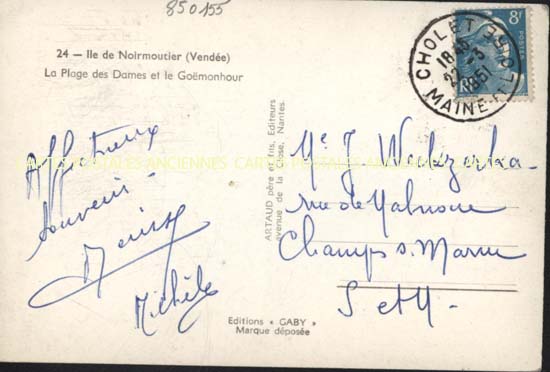 850155
24 — Ile de Noirmoutier (Vendée)
La Plage des Dames et le Goëmonhour
8F
POSTES
CHOLET
18 45
22 -5
1951
MAINE
CARTES POSTALES ANCIENNES CARTES POSTALES ANCIENNES CARTES POSTALES ANCIENNES
ARTAUD père et fils, Editeurs
avenue de la Close, Nantes.
Affectueux
souvenir
Michèle
J
rue de
Champs s. Marne
S et M.
Editions « GABY »
Marque déposée